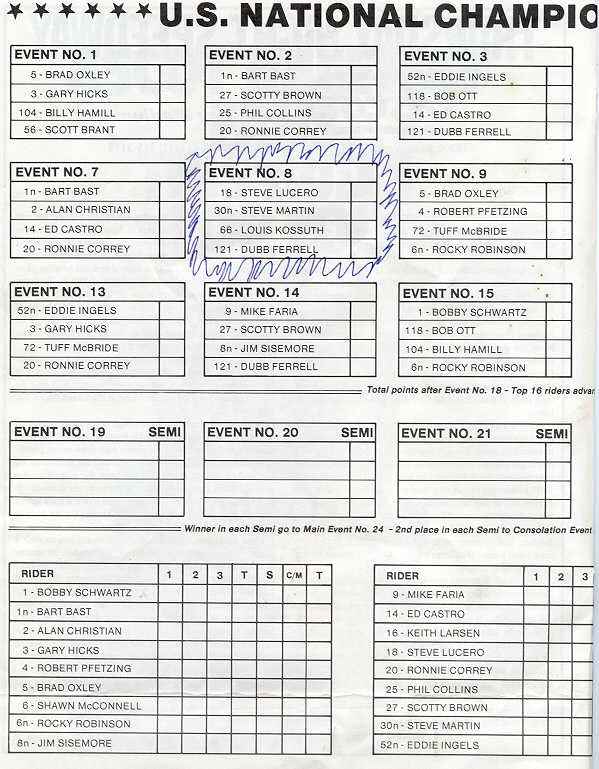 ★ ★ ★ ★ ★ ★ U.S. NATIONAL CHAMPIO
EVENT NO. 1
5 - BRAD OXLEY
3 - GARY HICKS
104 - BILLY HAMILL
56 - SCOTT BRANT
EVENT NO. 2
1n - BART BAST
27 - SCOTTY BROWN
25 - PHIL COLLINS
20 - RONNIE CORREY
EVENT NO. 3
52n - EDDIE INGELS
118 - BOB OTT
14 - ED CASTRO
121 - DUBB FERRELL
EVENT NO. 7
1n - BART BAST
2 - ALAN CHRISTIAN
14 - ED CASTRO
20 - RONNIE CORREY
EVENT NO. 8
18 - STEVE LUCERO
30n - STEVE MARTIN
66 - LOUIS KOSSUTH
121 - DUBB FERRELL
EVENT NO. 9
5 - BRAD OXLEY
4 - ROBERT PFETZING
72 - TUFF McBRIDE
6n - ROCKY ROBINSON
EVENT NO. 13
52n - EDDIE INGELS
3 - GARY HICKS
72 - TUFF McBRIDE
20 - RONNIE CORREY
EVENT NO. 14
9 - MIKE FARIA
27 - SCOTTY BROWN
8n - JIM SISEMORE
121 - DUBB FERRELL
EVENT NO. 15
1 - BOBBY SCHWARTZ
118 - BOB OTT
104 - BILLY HAMILL
6n - ROCKY ROBINSON
Total points after Event No. 18 - Top 16 riders advan
EVENT NO. 19 SEMI
EVENT NO. 20 SEMI
EVENT NO. 21 SEMI
Winner in each Semi go to Main Event No. 24 - 2nd place in each Semi to Consolation Event
RIDER 1 2 3 T S C/M T
1 - BOBBY SCHWARTZ
1n - BART BAST
2 - ALAN CHRISTIAN
3 - GARY HICKS
4 - ROBERT PFETZING
5 - BRAD OXLEY
6 - SHAWN McCONNELL
6n - ROCKY ROBINSON
8n - JIM SISEMORE
RIDER 1 2 3
9 - MIKE FARIA
14 - ED CASTRO
16 - KEITH LARSEN
18 - STEVE LUCERO
20 - RONNIE CORREY
25 - PHIL COLLINS
27 - SCOTTY BROWN
30n - STEVE MARTIN
52n - EDDIE INGELS